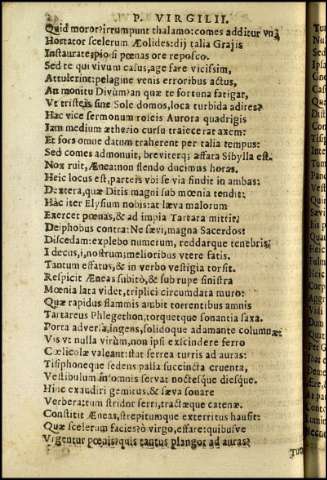 P. VIRGILII.
Quid moror? irrumpunt thalamo: comes additur vnà
Hortator scelerum Æolides: dij talia Graijs
Instaurate, pio si pœnas ore reposco.
Sed te qui vivum casus, age fare vicissim,
Attulerint: pelagine venis erroribus actus,
An monitu Divûm? an quæ te fortuna fatigat,
Vt tristeis sine Sole domos, loca turbida adires?
Hac vice sermonum roseis Aurora quadrigis
Iam medium ætherio cursu traiecerat axem:
Et fors omne datum traherent per talia tempus:
Sed comes admonuit, breviterq; affata Sibylla est.
Nox ruit, Ænea: nos flendo ducimus horas.
Heic locus est, parteis vbi se via findit in ambas:
Dextera, quæ Ditis magni sub mœnia tendit:
Hâc iter Elysium nobis: at læva malorum
Exercet pœnas, & ad impia Tartara mittit.
Deiphobus contra: Ne sævi, magna Sacerdos:
Discedam: explebo numerum, reddarque tenebris.
I decus, i, nostrum; melioribus vtere fatis.
Tantum effatus, & in verbo vestigia torsit.
Respicit Æneas subitò, & sub rupe sinistra
Mœnia lata videt, triplici circumdata muro:
Quæ rapidus flammis ambit torrentibus amnis
Tartareus Phlegethon, torquetque sonantia saxa.
Porta adversa, ingens, solidoque adamante columnæ:
Vis vt nulla virûm, non ipsi exscindere ferro
Cœlicolæ valeant: stat ferrea turris ad auras:
Tisiphoneque sedens palla succincta cruenta,
Vestibulum insomnis servat noctesque diesque.
Hinc exaudiri gemitus, & sæva sonare
Verbera: tum stridor ferri, tractæque catenæ.
Constitit Æneas, strepitumque exterritus hausit:
Quæ scelerum facies? ò virgo, effare: quibusve
Vrgentur pœnis? quis tantus plangor ad auras?
Tum